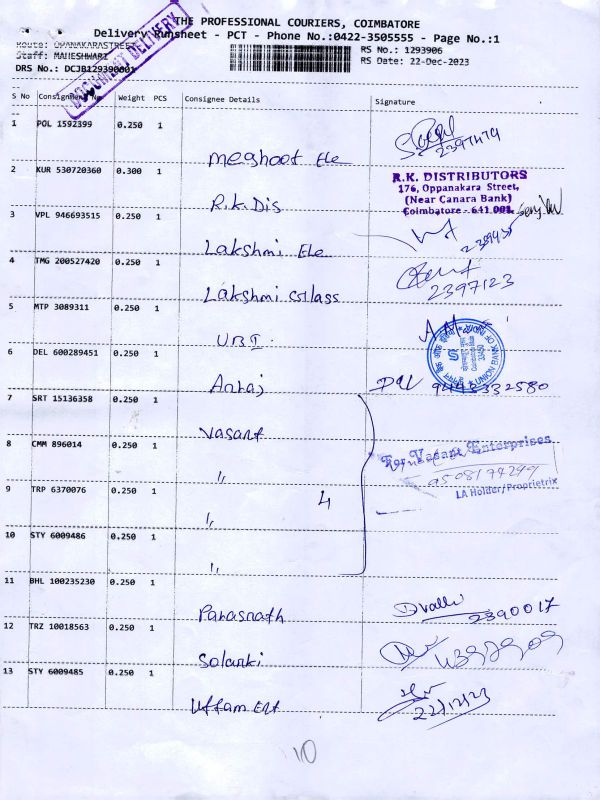 THE PROFESSIONAL COURIERS, COIMBATORE
Delivery Runsheet - PCT - Phone No.:0422-3505555 - Page No.:1
Route: OPANAKARASTREET
Staff: MAHESHWARI
DRS No.: DCJB129390601
RS No.: 1293906
RS Date: 22-Dec-2023
DOCUMENT DELIVERY
S No Consignment No Weight PCS Consignee Details Signature
1 POL 1592399 0.250 1 Meghoot Ele 2397474
2 KUR 530720360 0.300 1 R.K. Dis
R.K. DISTRIBUTORS
176, Oppanakara Street,
(Near Canara Bank)
Coimbatore - 641 001.
3 VPL 946693515 0.250 1 Lakshmi Ele
4 TMG 200527420 0.250 1 Lakshmi Glass 2397123
5 MTP 3089311 0.250 1 UBI.
UNION BANK OF INDIA
6 DEL 600289451 0.250 1
7 SRT 15136358 0.250 1 Vasant
For Vasant Enterprises
LA Holder/Proprietrix
8 CMM 896014 0.250 1 "
9 TRP 6370076 0.250 1 " 4
10 STY 6009486 0.250 1 "
11 BHL 100235230 0.250 1 Parasnath Dvalli 2390017
12 TRZ 10018563 0.250 1 Solanki
13 STY 6009485 0.250 1 Uttam Ent 22/12/23
10